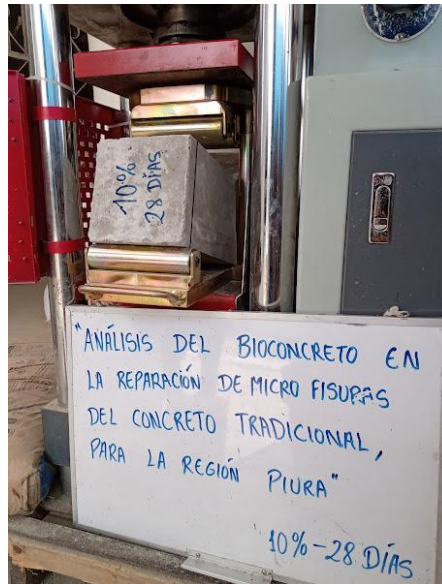 10%
28 DÍAS
"ANÁLISIS DEL BIOCONCRETO EN
LA REPARACIÓN DE MICRO FISURAS
DEL CONCRETO TRADICIONAL,
PARA LA REGIÓN PIURA"
10%-28 DÍAS